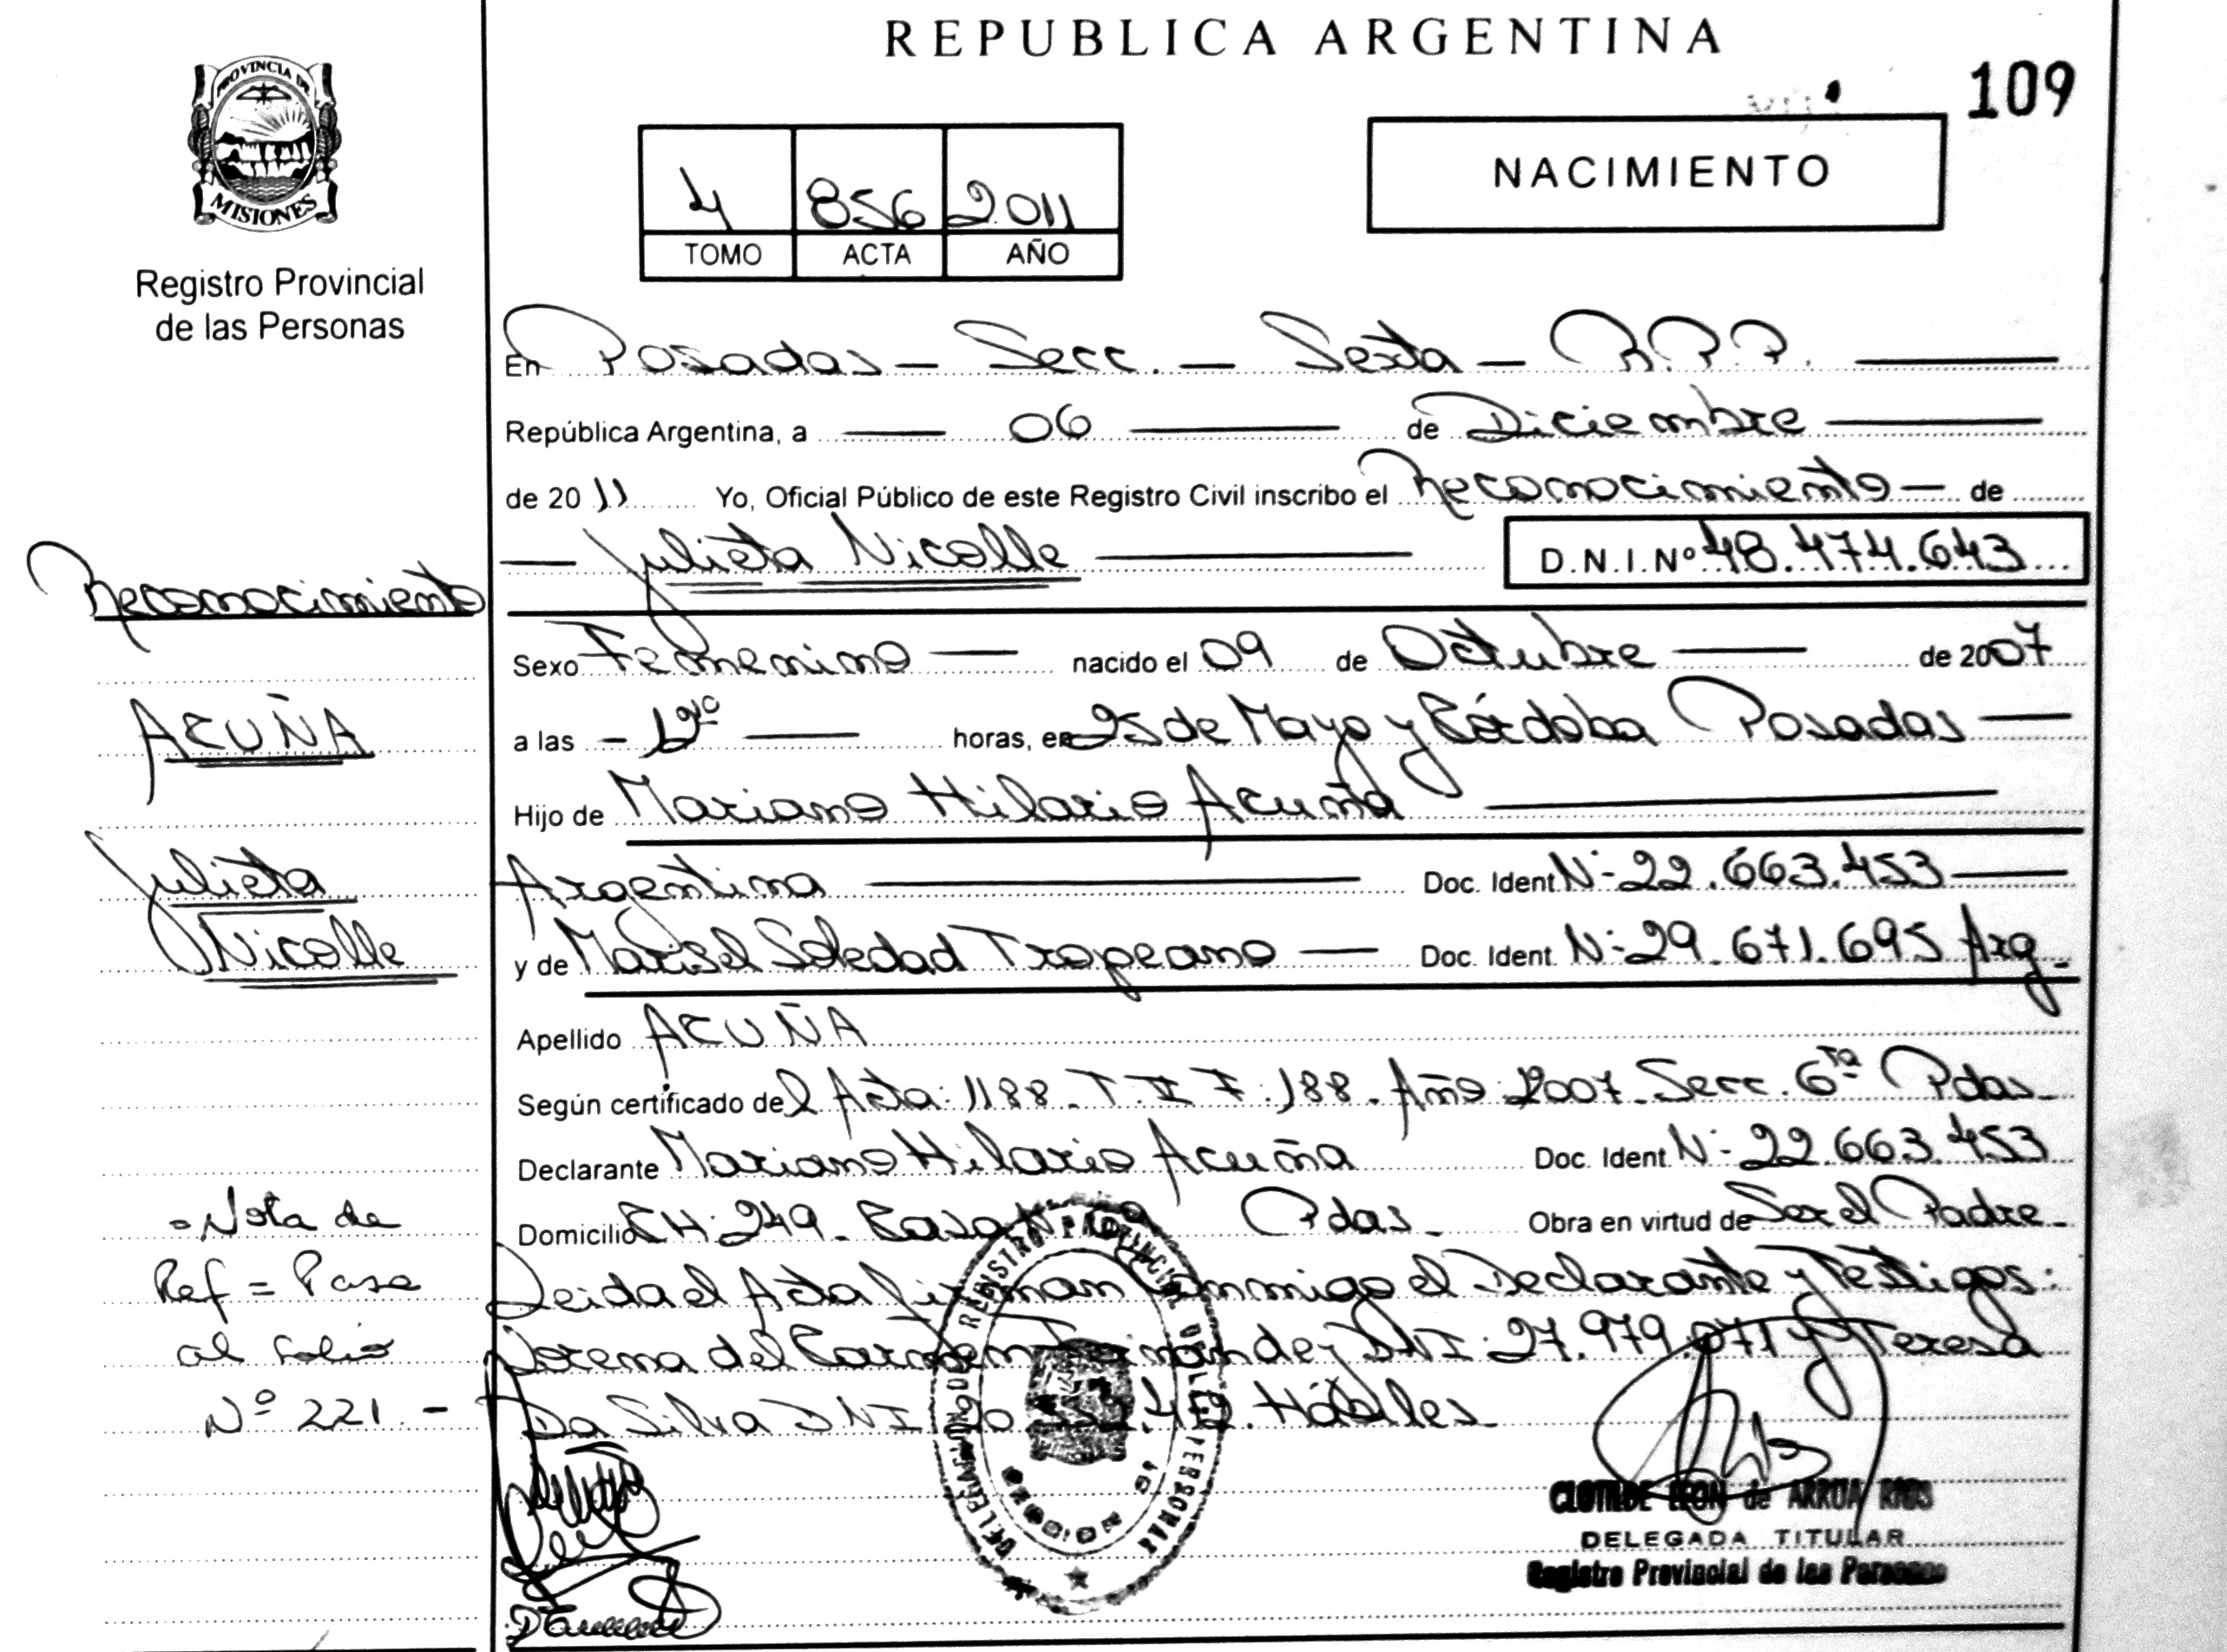 REPUBLICA ARGENTINA
109
PROVINCIA DE
MISIONES
Registro Provincial
de las Personas
4 856 2011
TOMO ACTA AÑO
NACIMIENTO
En Posadas — Secc. — Sexta — R.P.P. —
República Argentina, a — 06 — de Diciembre —
de 2011 Yo, Oficial Público de este Registro Civil inscribo el Reconocimiento — de
— Julieta Nicolle — D.N.I.Nº 48.474.643
Sexo Femenino — nacido el 09 de Octubre — de 2007
a las — 12º — horas, en 25 de Mayo y Córdoba Posadas —
Hijo de Mariano Hilario Acuña —
Argentina — Doc. Ident N- 22.663.453 —
y de Marisel Soledad Tropeano — Doc. Ident. N- 29.671.695 Arg.
Apellido ACUÑA
Según certificado del Acta: 1188. T. II F: 188. Año: 2007. Secc. 6ta Pdas.
Declarante Mariano Hilario Acuña Doc. Ident N- 22.663.453
Domicilio CH: 249. Casa Pdas. Obra en virtud de Ser el Padre.
Leida el Acta firman conmigo el Declarante y Testigos:
Lorena del Carmen DNI: 27.979.071 y Teresa
Da Silva DNI Hábiles
Reconocimiento
ACUÑA
Julieta
Nicolle
- Nota de
Ref = Pase
al folio
Nº 221 -
REGISTRO PROVINCIAL DE LAS PERSONAS
CLOTILDE LEON de ARRUA RIOS
DELEGADA TITULAR
Registro Provincial de las Personas